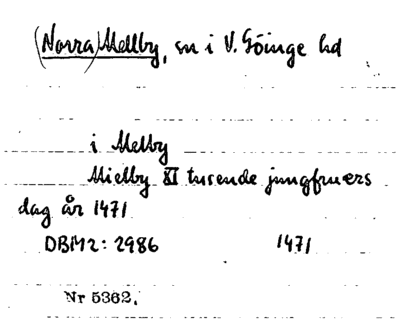 (Norra) Mellby, sn i V. Göinge hd
i Melby
Mielby XI tusende jungfruers
dag år 1471
DBM2: 2986 1471
Nr 5362.